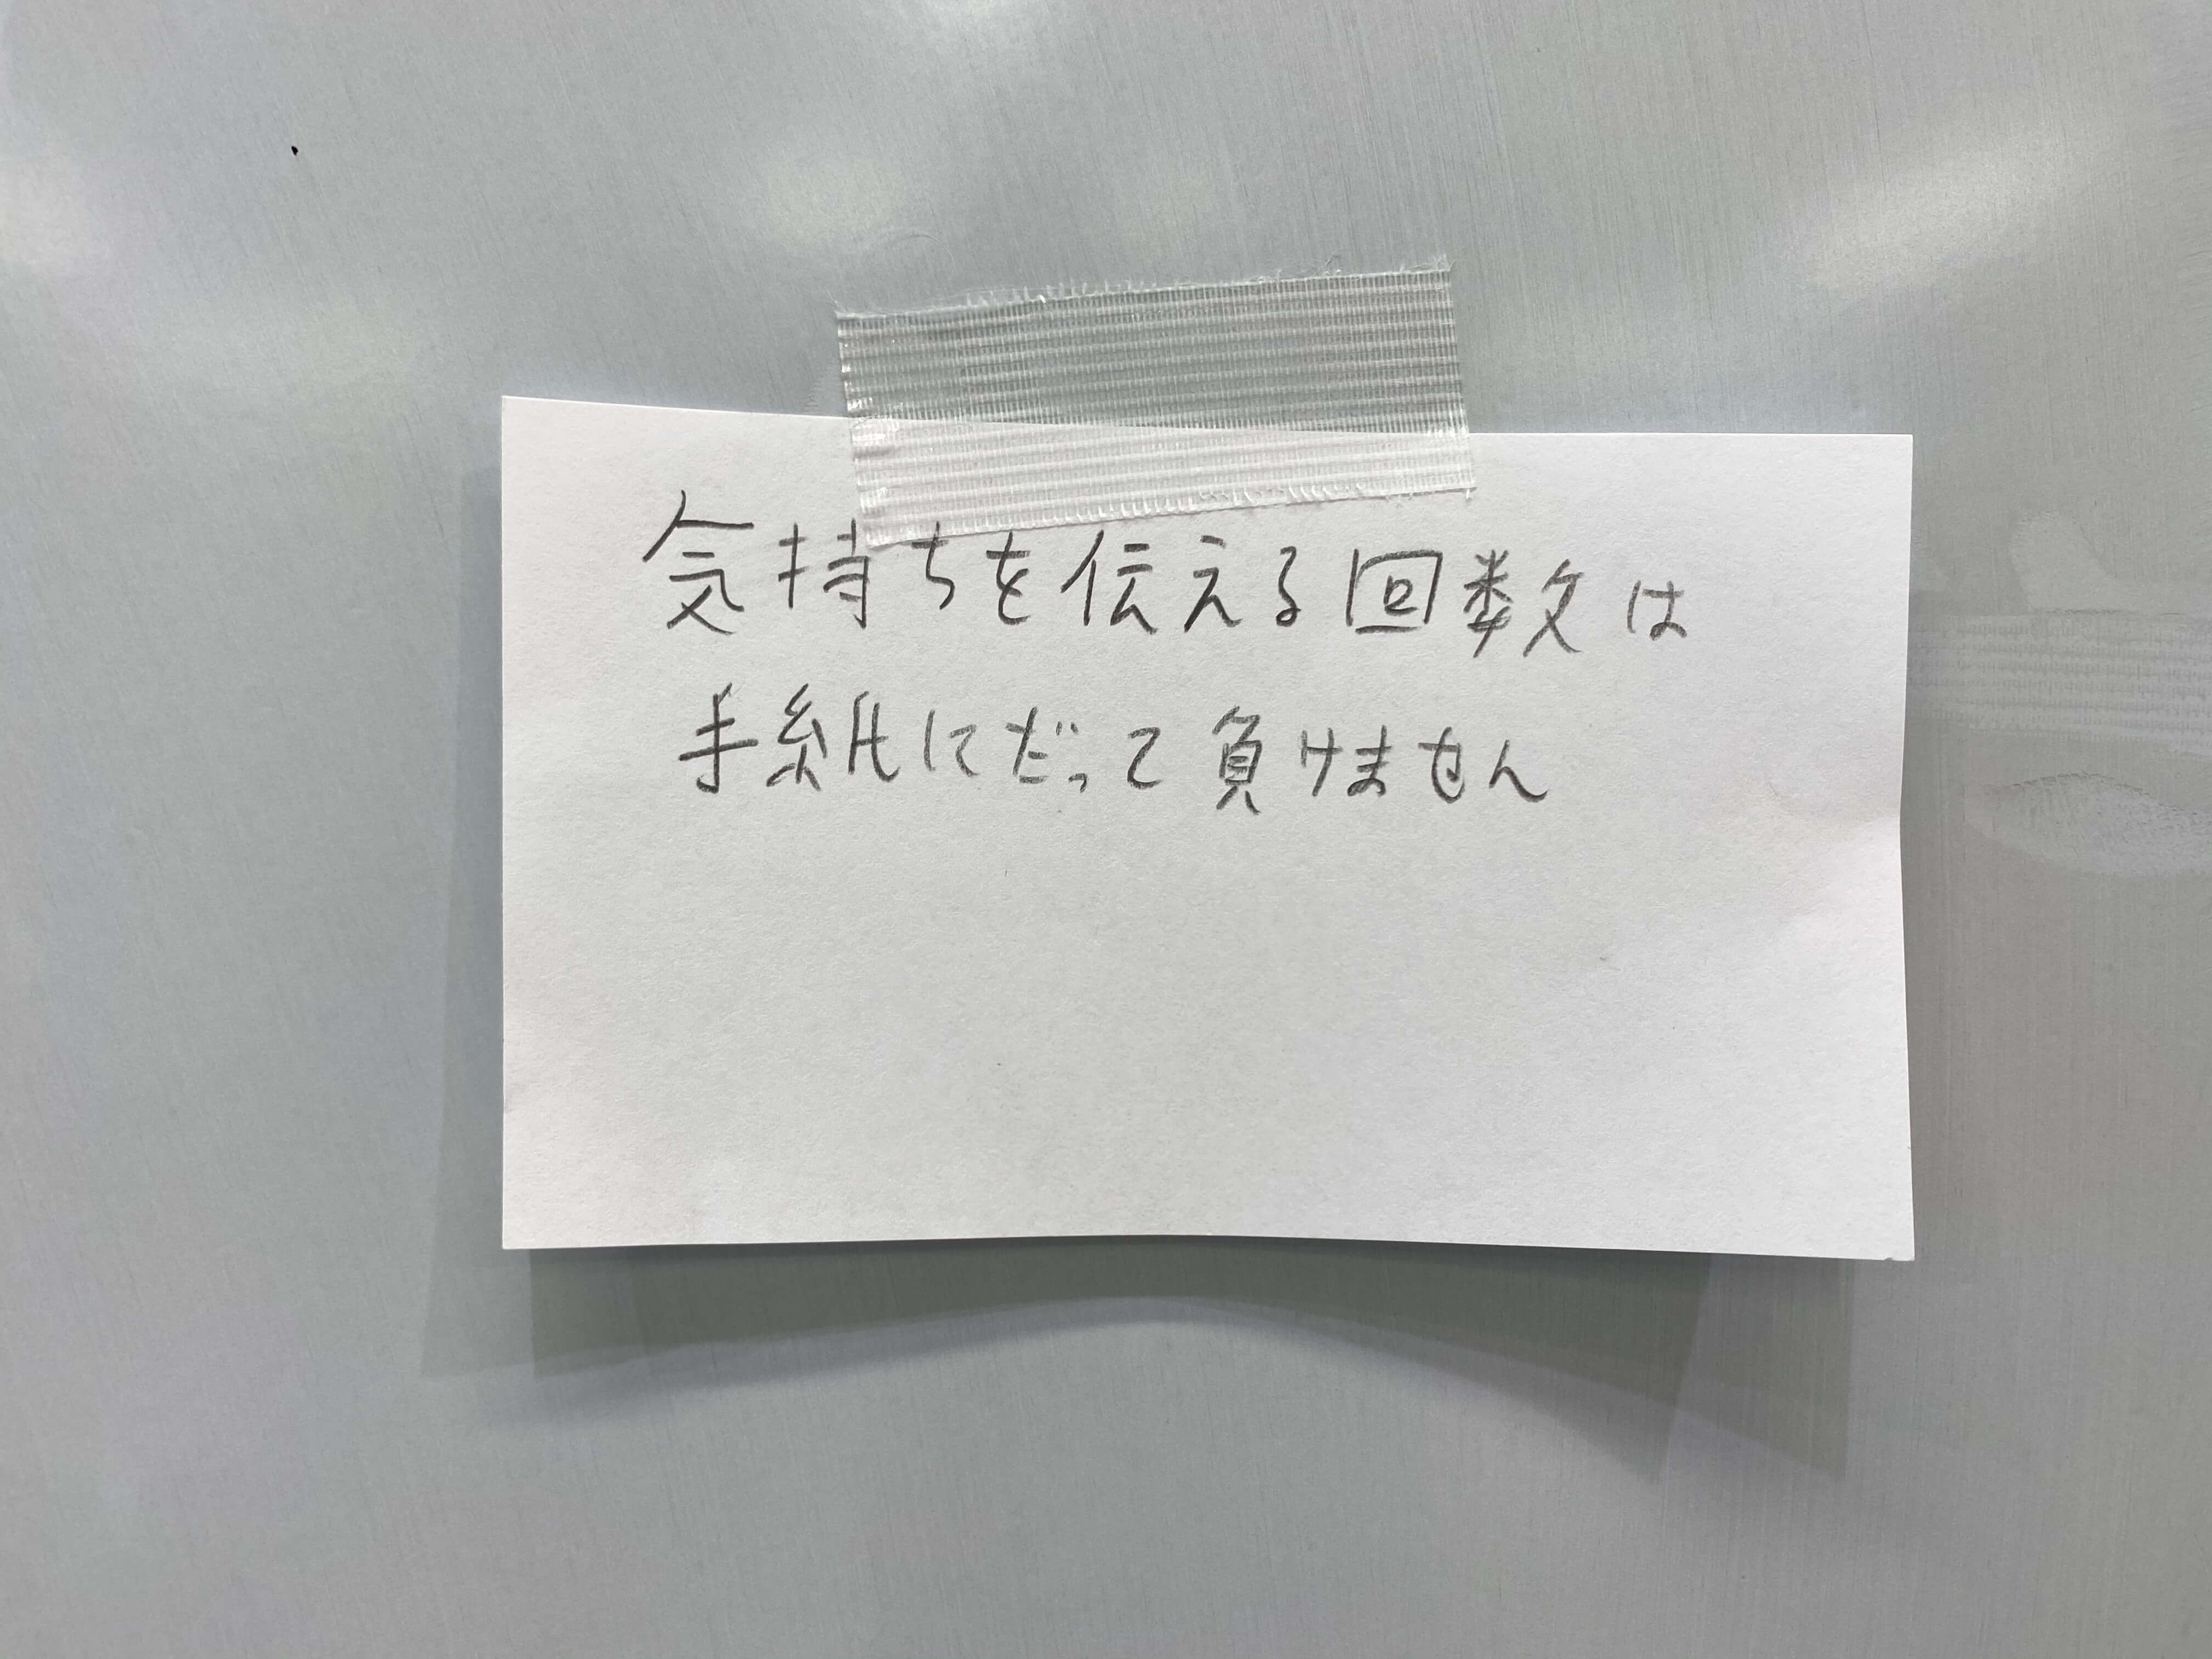 気持ちを伝える回数は
手紙にだって負けません